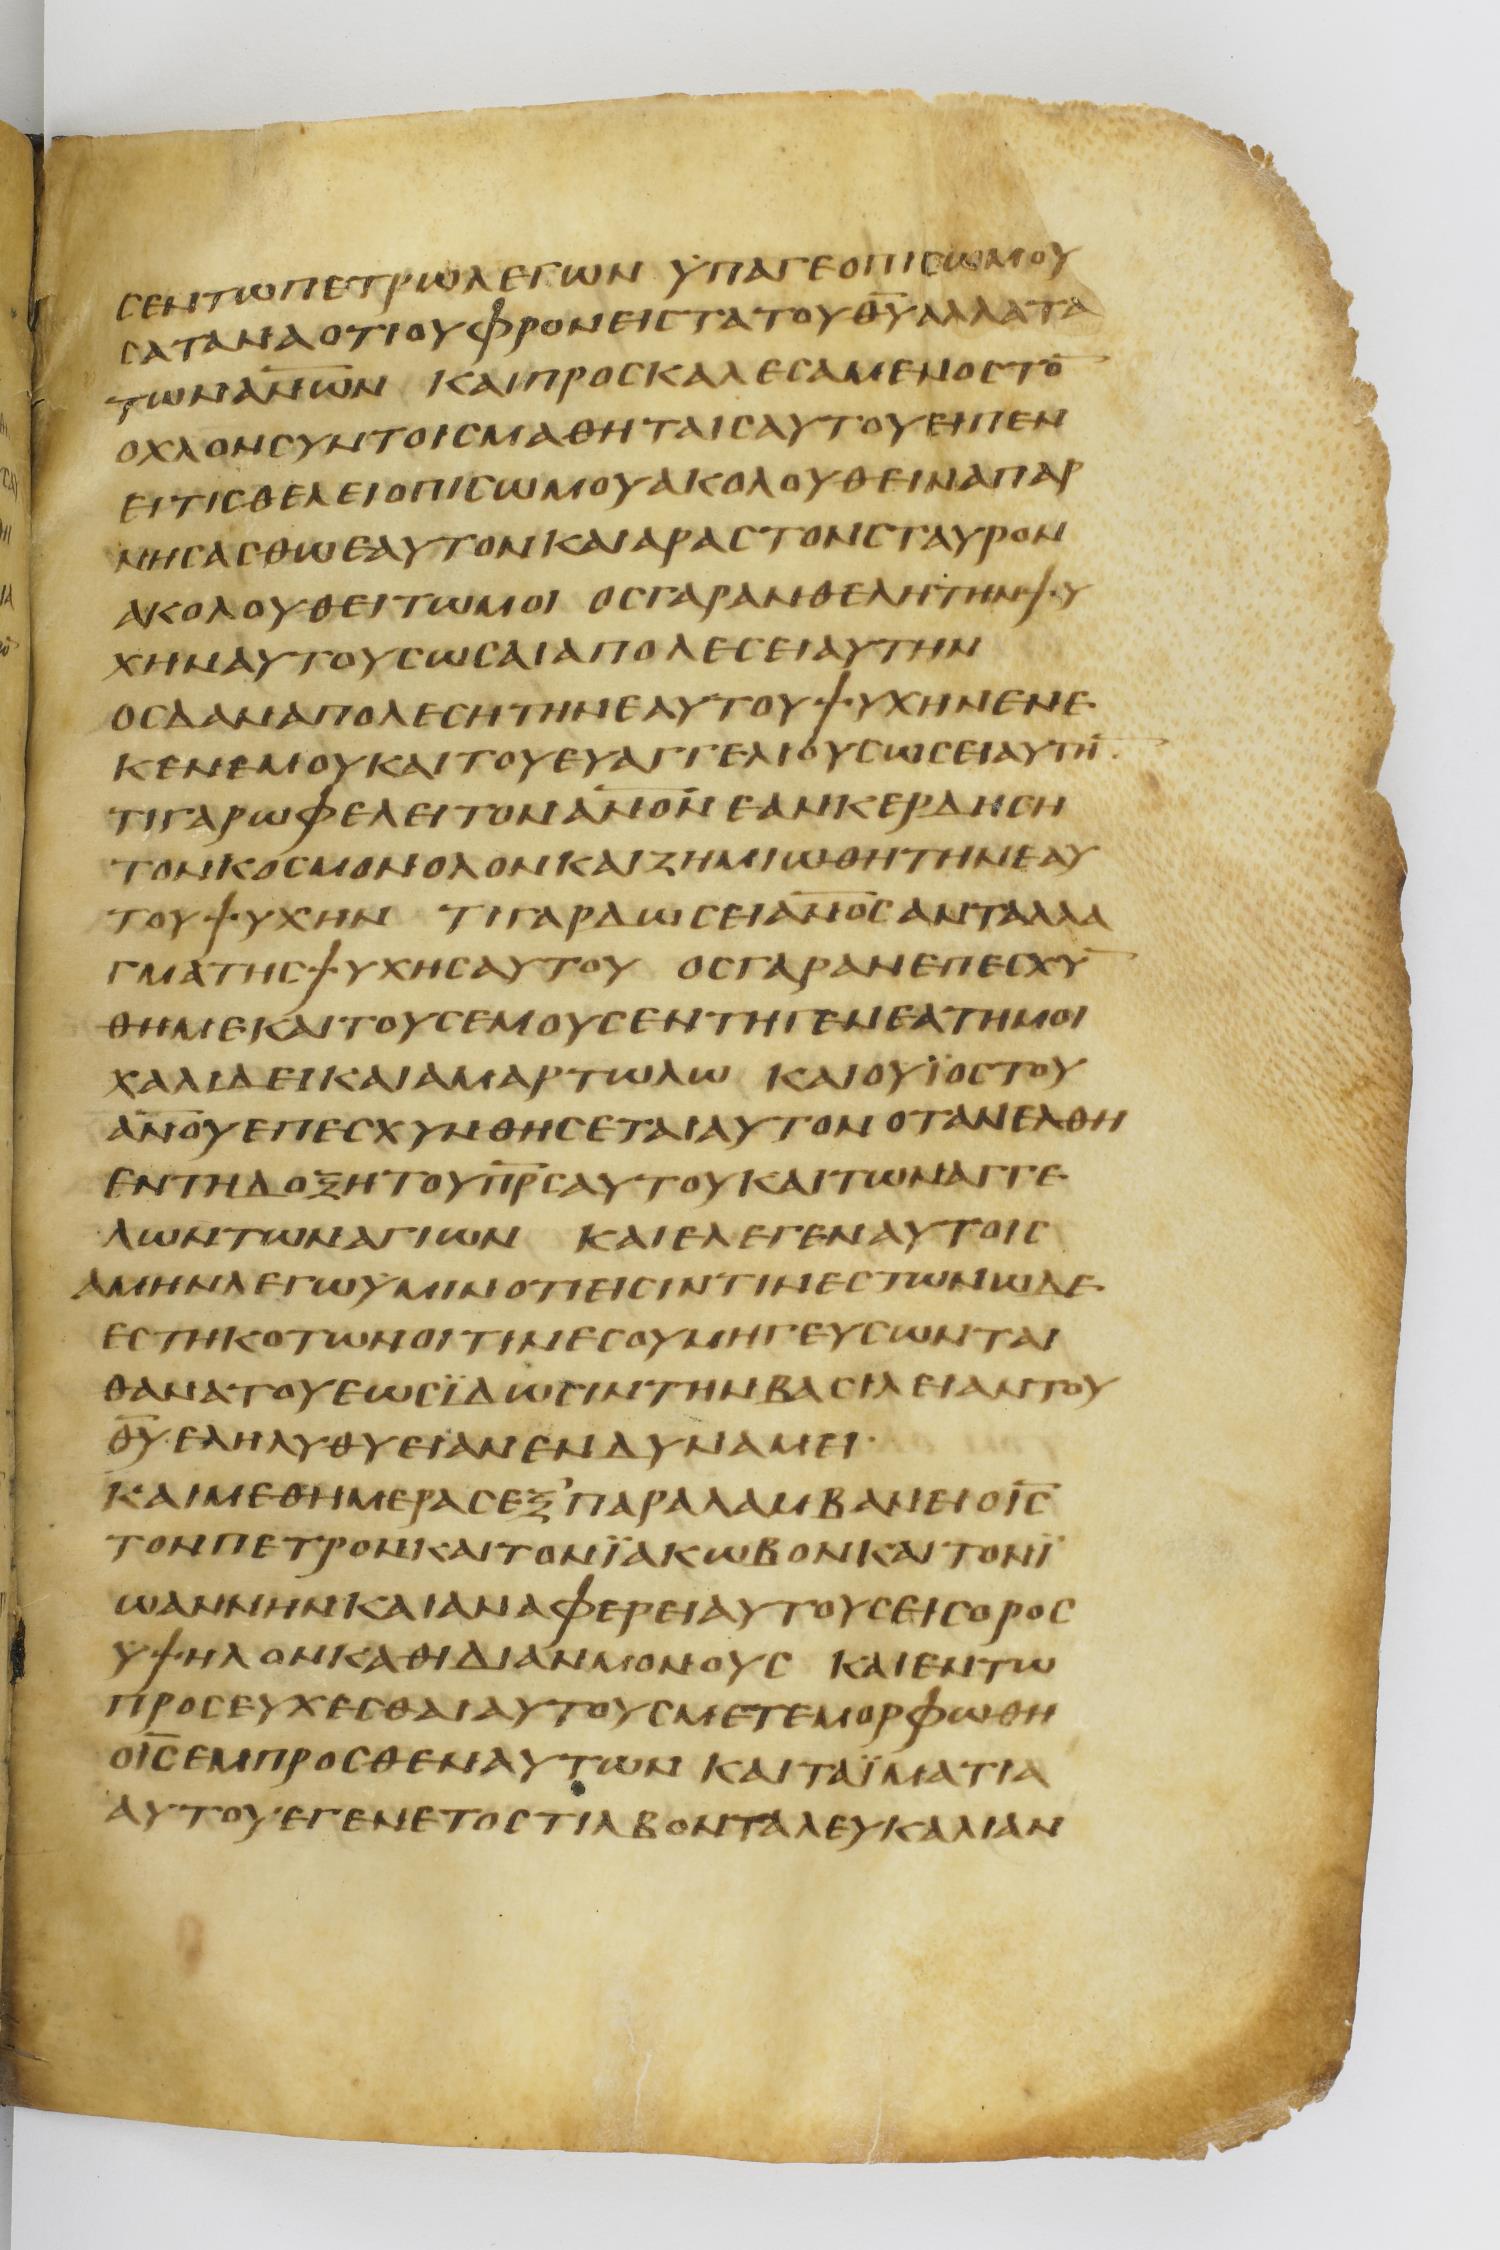 ϲεντωπετρωλεγων ϋπαγεοπιϲωμου
ϲαταναοτιουφρονειϲτατουθ̅υ̅αλλατα
τωνα̅ν̅ω̅ν̅ καιπροϲκαλεϲαμενοϲτο̅
οχλονϲυντοιϲμαθηταιϲαυτουειπεν
ειτιϲθελειοπιϲωμουακολουθειναπαρ
νηϲαϲθωεαυτονκαιαραϲτονϲταυρον
ακολουθειτωμοι οϲγαρανθελητηνψυ
χηναυτουϲωϲαιαπολεϲειαυτην
οϲδαναπολεϲητηνεαυτουψυχηνενε
κενεμουκαιτουευαγγελιουϲωϲειαυτη̅
τιγαρωφελειτονα̅ν̅ο̅ν̅εανκερδηϲη
τονκοϲμονολονκαιζημιωθητηνεαυ
τουψυχην τιγαρδωϲεια̅ν̅ο̅ϲ̅ανταλλα
γματηϲψυχηϲαυτου οϲγαρανεπεϲχυ̅
θημεκαιτουϲεμουϲεντηγενεατημοι
χαλιδεικαιαμαρτωλω καιουϊοϲτου
α̅ν̅ο̅υ̅επεϲχυνθηϲεταιαυτονοτανελθη
εντηδοξητουπ̅ρ̅ϲ̅αυτουκαιτωναγγε
λωντωναγιων καιελεγεναυτοιϲ
αμηνλεγωϋμινοτιειϲιντινεϲτωνωδε
εϲτηκοτωνοιτινεϲουμηγευϲωνται
θανατουεωϲϊδωϲιντηνβαϲιλειαντου
θ̅υ̅εληλυθυειανενδυναμει·
καιμεθημεραϲεξ'παραλαμβανειοι̅ϲ̅
τονπετρονκαιτονϊακωβονκαιτονϊ
ωαννηνκαιαναφερειαυτουϲειϲοροϲ
υψηλονκαθιδιανμονουϲ καιεντω
προϲευχεϲθαιαυτουϲμετεμορφωθη
οι̅ϲ̅εμπροϲθεναυτων καιταϊματια
αυτουεγενετοϲτιλβονταλευκαλιαν